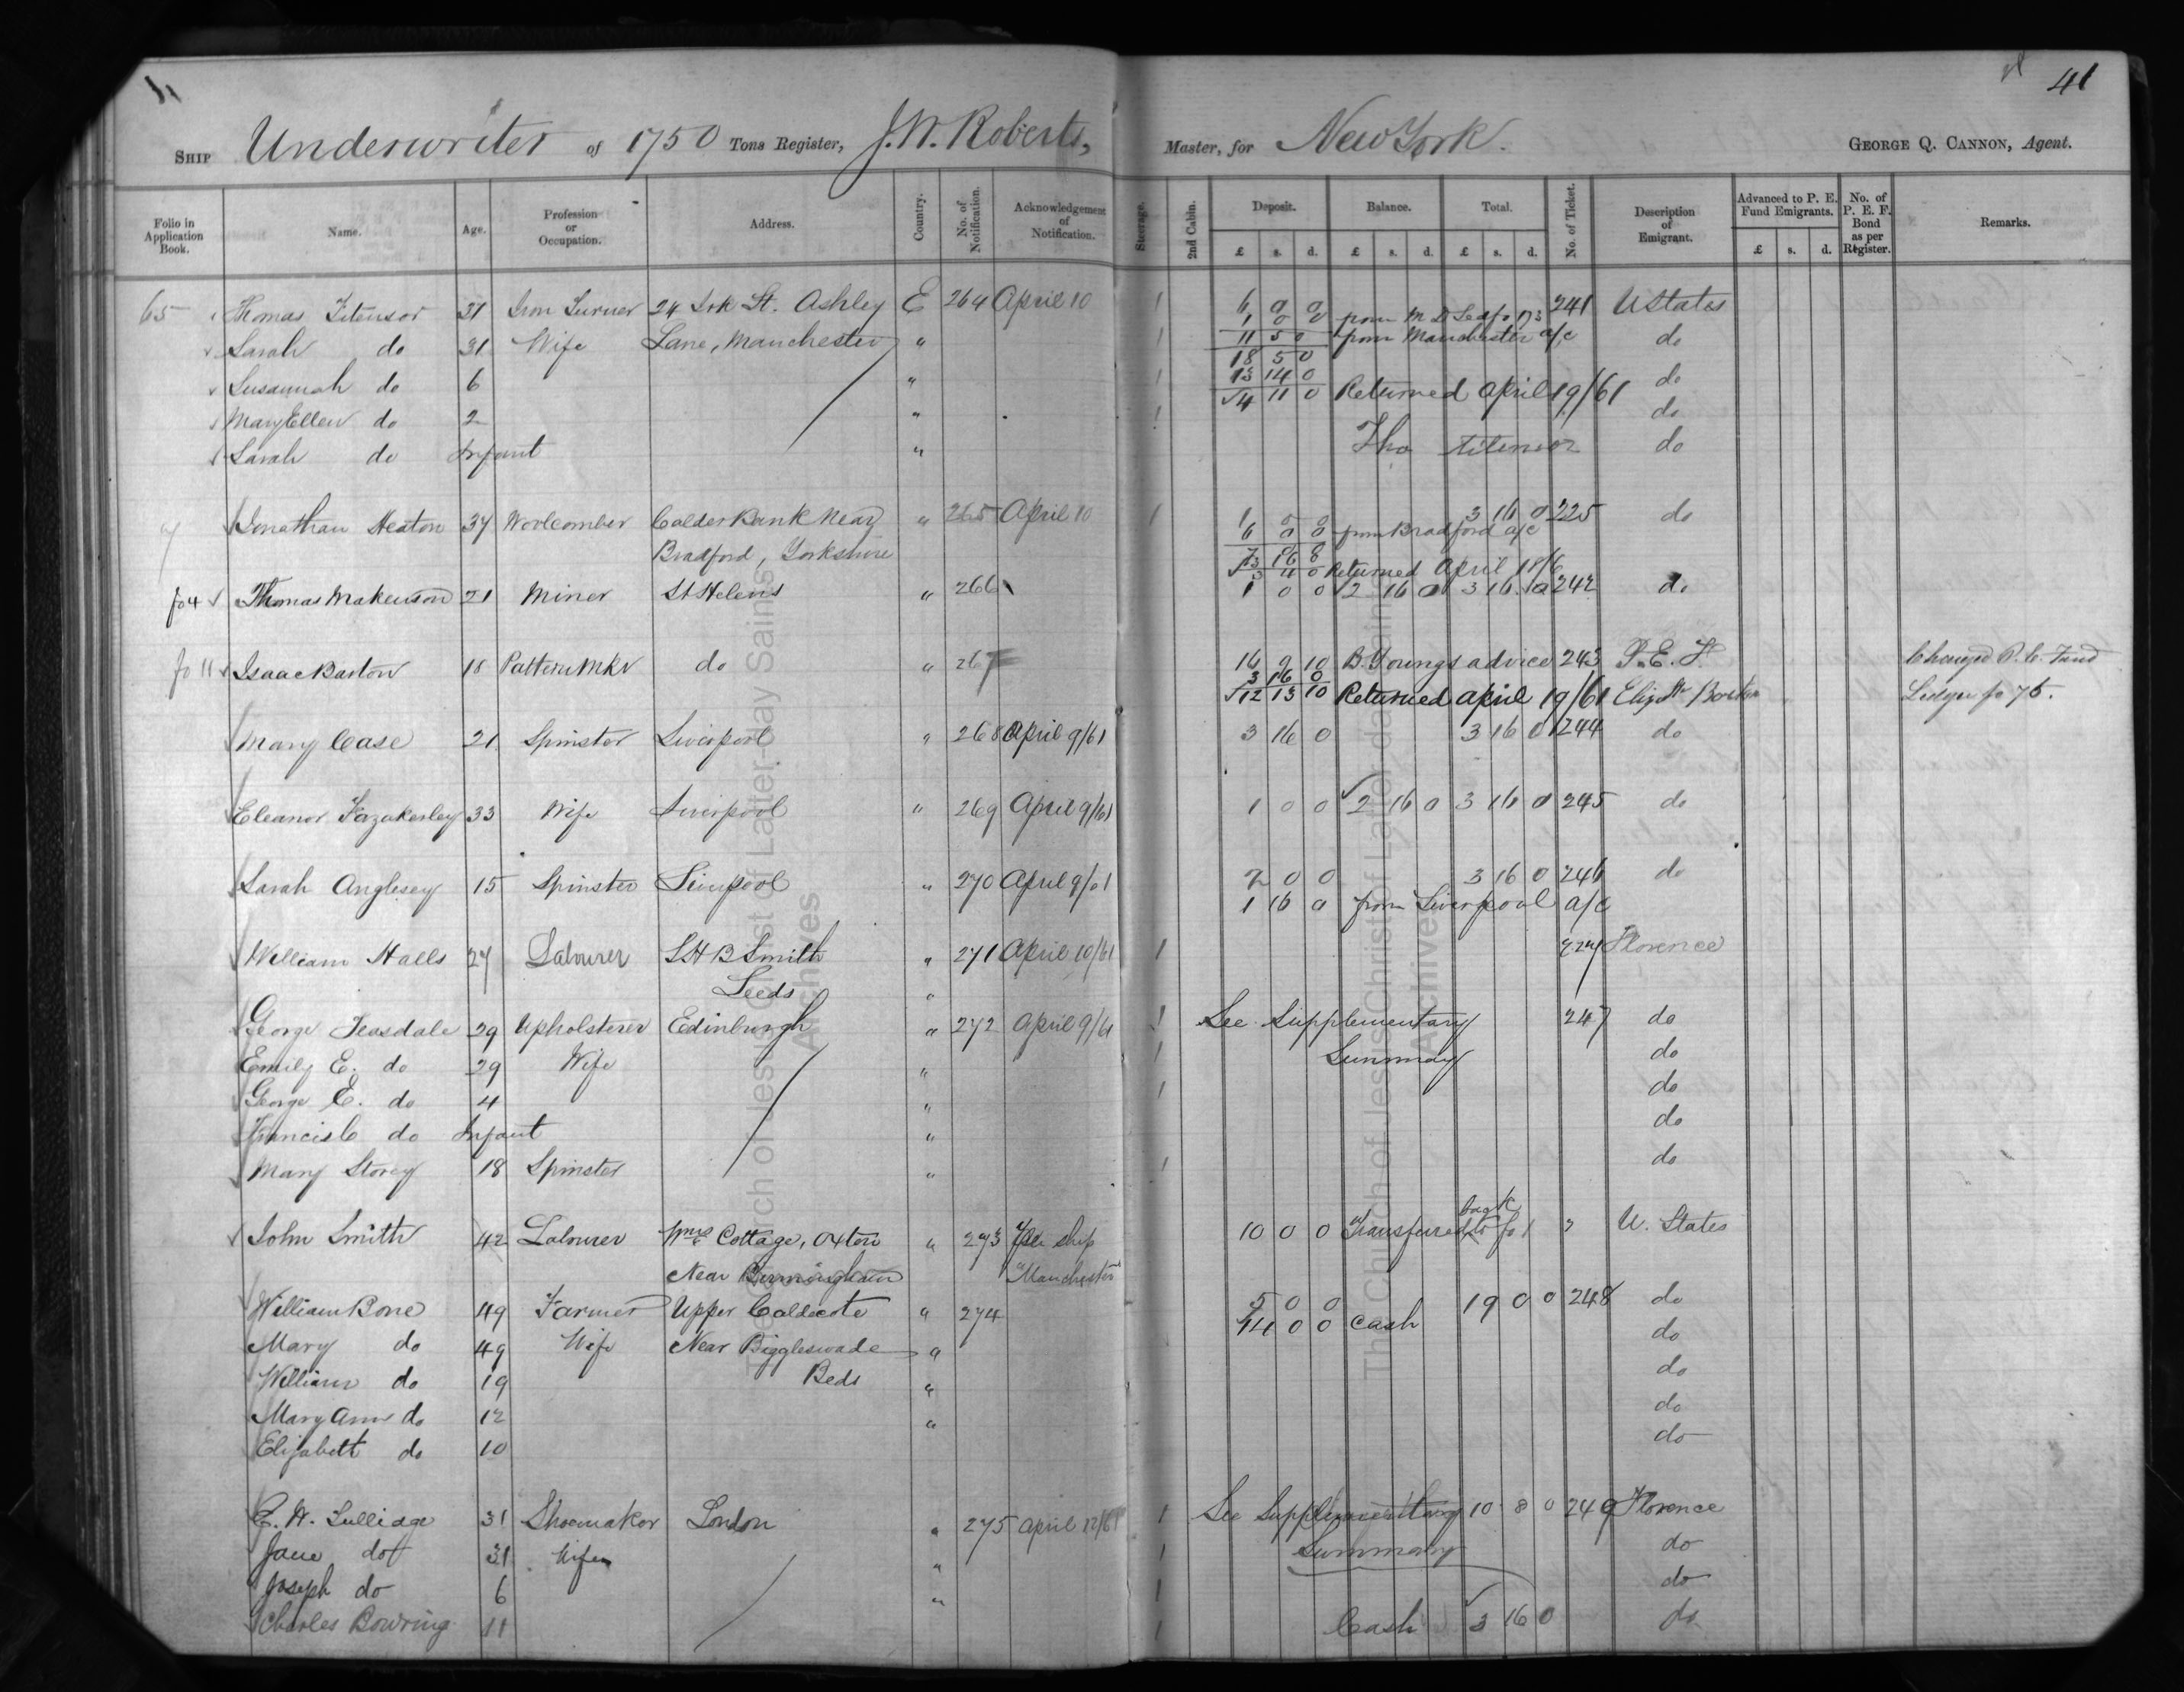 41
Ship Underwriter of 1750 Tons Register, J.W. Roberts, Master, for New York. George Q. Cannon, Agent.
Folio in Application Book. Name. Age. Profession or Occupation. Address. Country. No. of Notification. Acknowledgement of Notification. Steerage. 2nd Cabin. Deposit. Balance. Total. No. of Ticket. Description of Emigrant. Advanced to P. E. Fund Emigrants. No. of P. E. F. Bond as per Register. Remarks.
£ s. d. £ s. d. £ s. d. £ s. d.
65 Thomas Titensor 31 Iron Turner 24 Ashley E 264 April 10 1 6 0 0 241 U States
1 0 0 from
Sarah do 31 Wife Lane, Manchester " 1 11 5 0 from Manchester a/c do
18 5 0
Susannah do 6 " 1 13 14 0 do
4 11 0 Returned April 19/61
Mary Ellen do 2 " 1 do
Sarah do Infant " Tho Titensor do
Jonathan Heaton 37 Woolcomber Calder Bank Near " 265 April 10 1 1 0 0 3 16 0 225 do
6 0 0 from Bradford a/c
Bradford, Yorkshire
Returned April
fo 4 Thomas Makenson 21 Miner St Helens " 266 1 0 0 2 16 0 3 16 0 242 do
fo 11 Isaac Barton 18 Pattern Mkr do " 267 16 9 10 B. Youngs advice 243 P. E. F. Changed P. E. Fund
3 16 0
12 13 10 Returned April 19/61 Elizth Barton Ledger fo 75.
Mary Case 21 Spinster Liverpool " 268 April 9/61 3 16 0 3 16 0 244 do
Eleanor Fazakerley 33 Wife Liverpool " 269 April 9/61 1 0 0 2 16 0 3 16 0 245 do
Sarah Anglesey 15 Spinster Liverpool " 270 April 9/61 2 0 0 3 16 0 246 do
1 16 0 from Liverpool a/c
William Halls 27 Labourer S H B Smith " 271 April 10/61 1 227 Florence
Leeds "
George Teasdale 29 Upholsterer Edinburgh " 272 April 9/61 1 See Supplementary 247 do
Emily E. do 29 Wife " 1 Summary do
George E. do 4 " 1 do
Francis C do Infant " do
Mary Storey 18 Spinster " 1 do
back
John Smith 42 Labourer Cottage, Oxton " 273 Per ship 10 0 0 Transferred to fo 1 U. States
Near Birmingham "Manchester"
William Bone 49 Farmer Upper Caldecote " 274 5 0 0 19 0 0 248 do
14 0 0 Cash
Mary do 49 Wife Near Biggleswade " do
William do 19 Beds " do
Mary Ann do 12 " do
Elizabeth do 10 do
E. W. Tullidge 31 Shoemaker London " 275 April 12/61 1 See Supplementary 10 8 0 249 Florence
Jane do 31 Wife " 1 Summary do
Joseph do 6 " 1 do
Charles Bowring 11 1 Cash 3 16 0 do
The Church of Jesus Christ of Latter-day Saints
Archives
The Church of Jesus Christ of Latter-day Saints
Archives